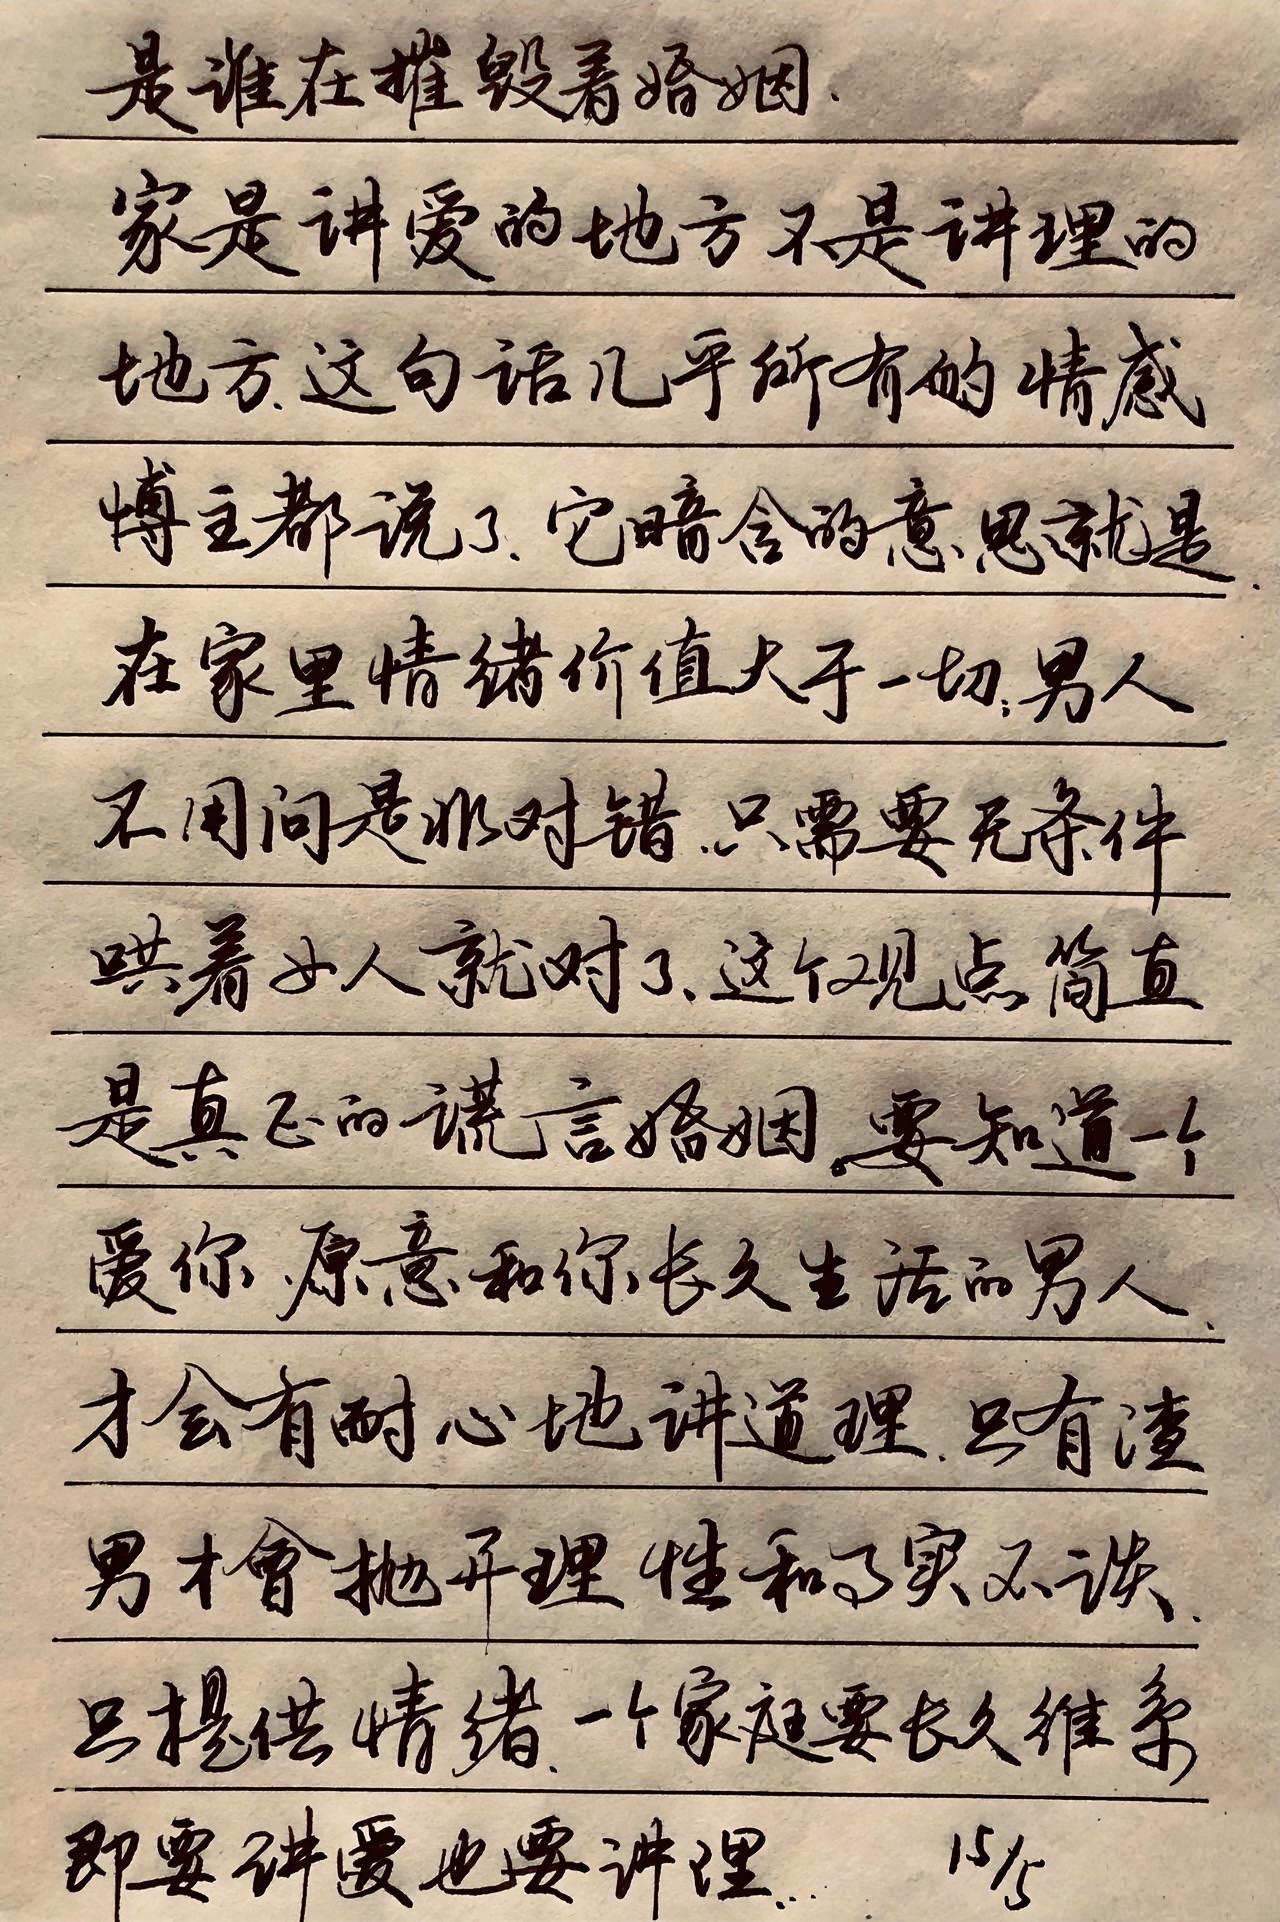 是谁在摧毁着婚姻.
家是讲爱的地方不是讲理的
地方、这句话几乎所有的情感
博主都说了、它暗含的意思就是、
在家里情绪价值大于一切;男人
不用问是非对错、只需要无条件
哄着女人就对了、这个观点简直
是真正的谎言婚姻。要知道一个
爱你、原意和你长久生活的男人、
才会有耐心地讲道理、只有渣
男才會抛开理性和事实不谈、
只提供情绪、一个家庭要长久维系
即要讲爱也要讲理...  15/5